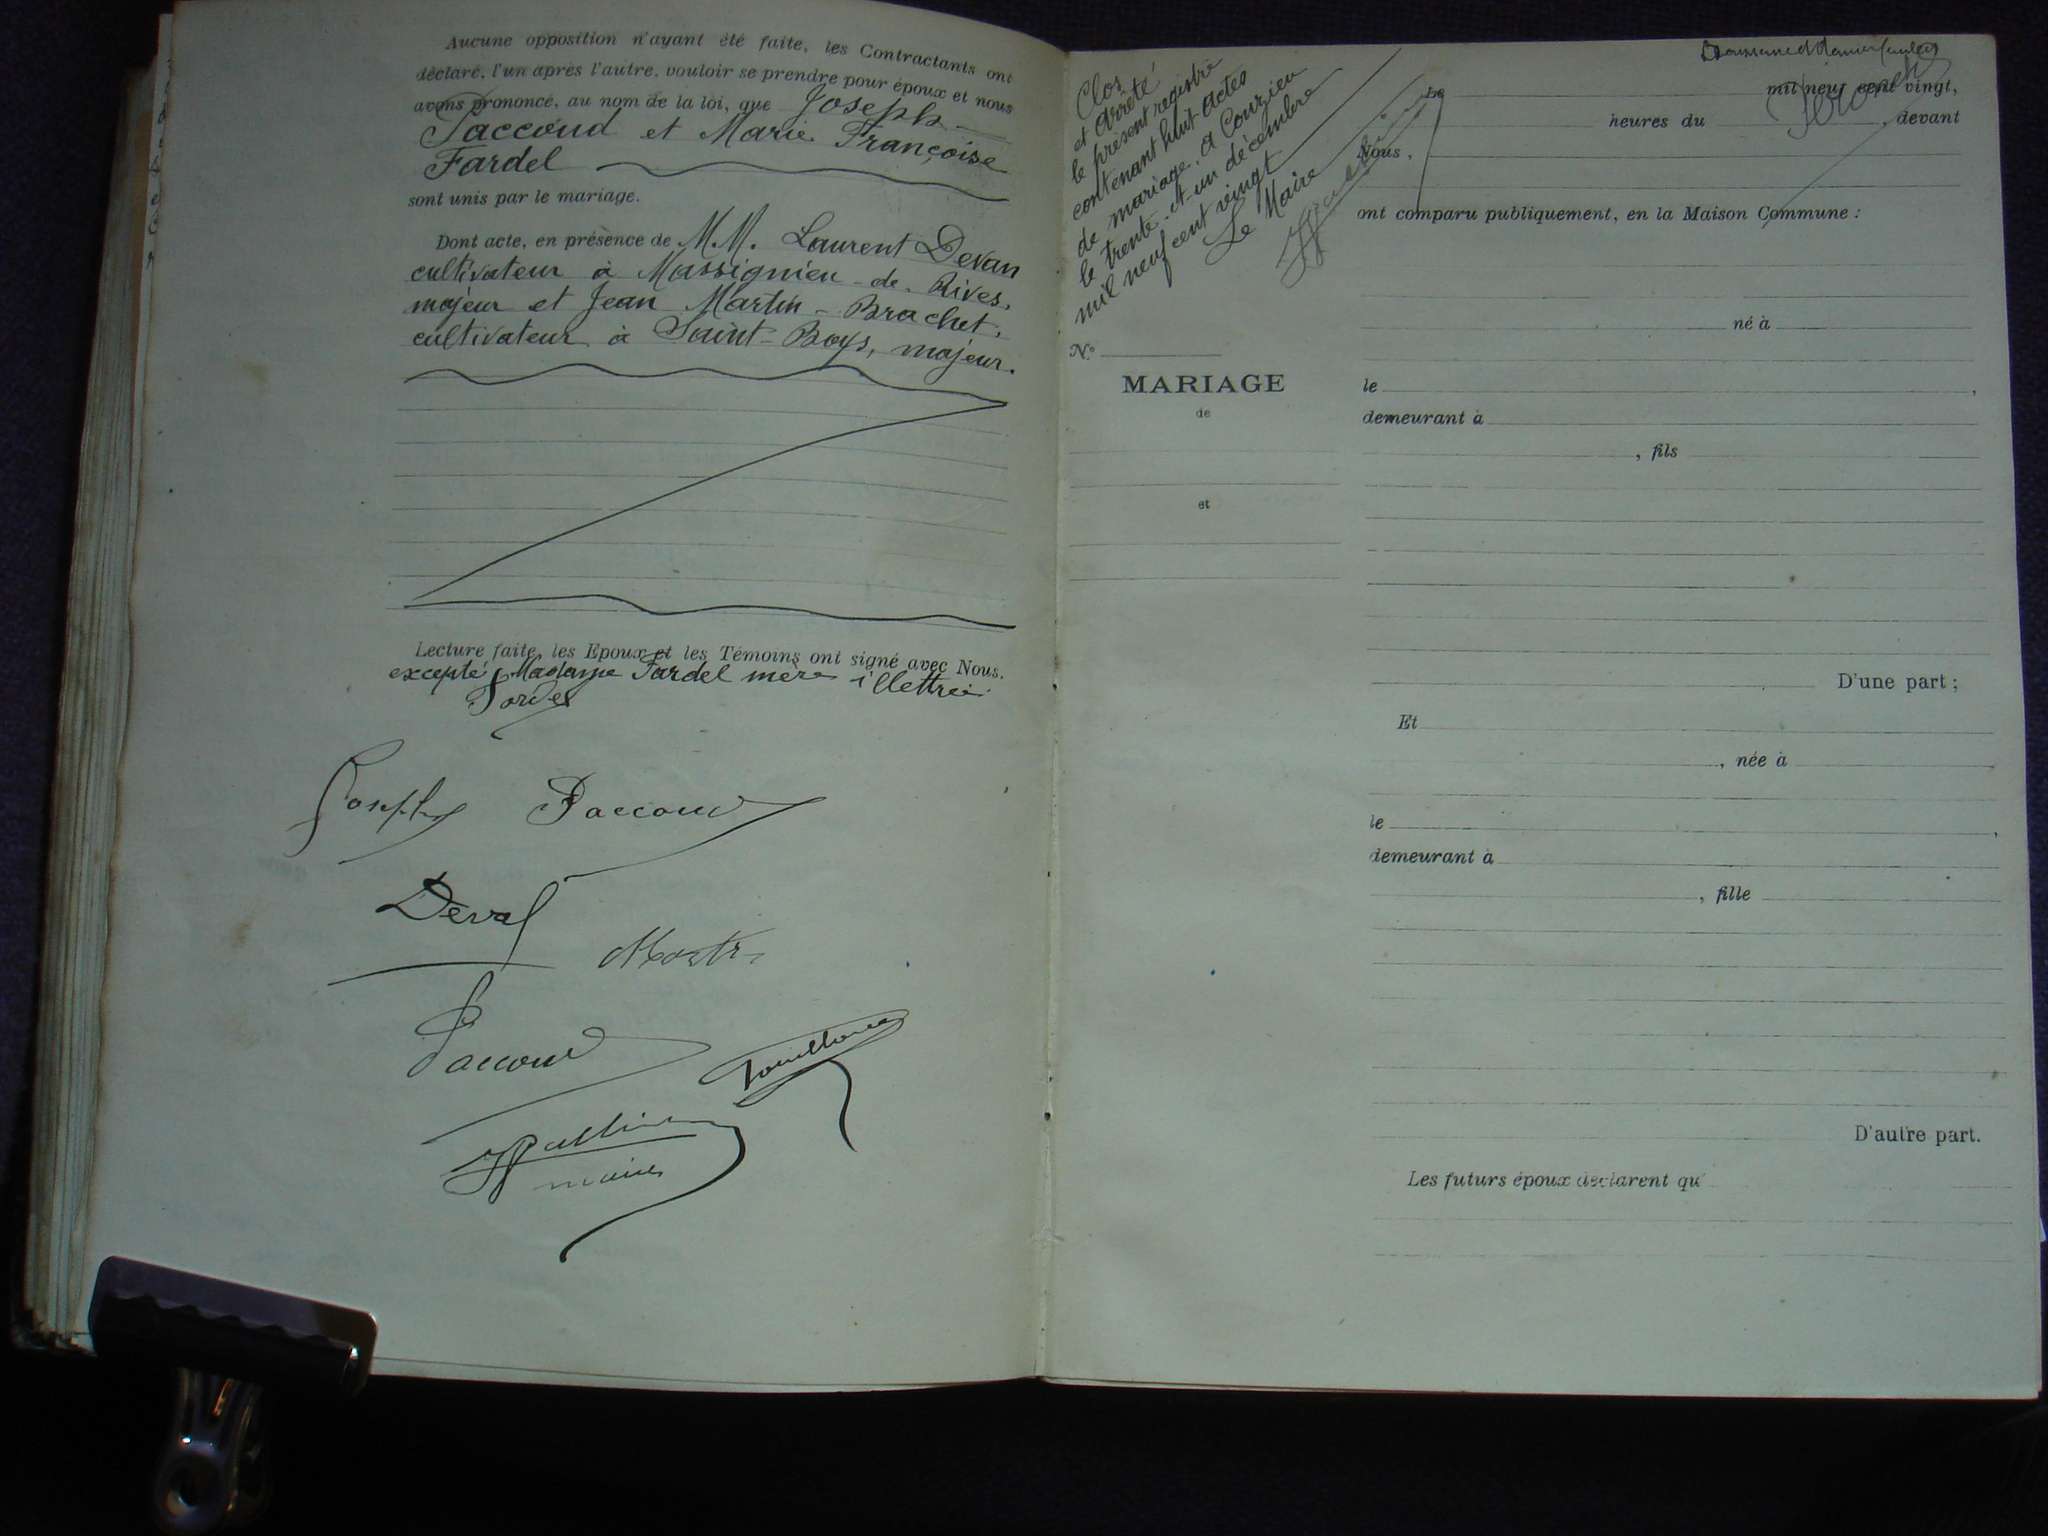 Aucune opposition n'ayant été faite, les Contractants ont
déclaré, l'un après l'autre, vouloir se prendre pour époux et nous
avons prononcé, au nom de la loi, que Joseph
Paccoud et Marie Françoise
Fardel
sont unis par le mariage.
Dont acte, en présence de MM. Laurent Devan
cultivateur à Massignieu-de-Rives,
majeur et Jean Martin-Brachet,
cultivateur à Saint-Boys, majeur.
Lecture faite, les Epoux et les Témoins ont signé avec Nous.
excepté Madame Fardel mère illettrée
Joseph Paccoud
Martin
Paccoud
maire
Clos
et arrêté
le présent registre
contenant huit actes
de mariage. A Conzieu
le trente-et-un décembre
mil neuf cent vingt
Le Maire
N.°
MARIAGE
de
et
Le mil neuf cent vingt,
heures du , devant
Nous,
ont comparu publiquement, en la Maison Commune :
né à
le ,
demeurant à
, fils
D'une part ;
Et
, née à
le ,
demeurant à
, fille
D'autre part.
Les futurs époux déclarent qu